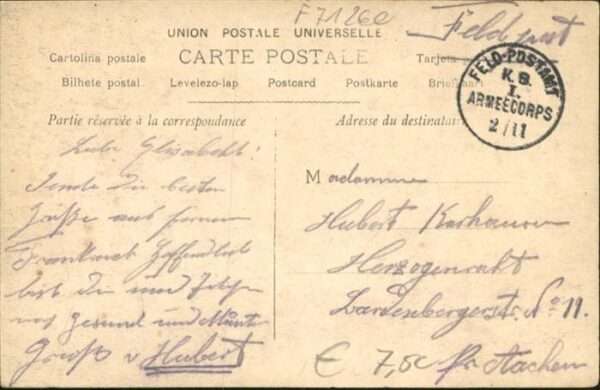 F71260
Feldpost
UNION POSTALE UNIVERSELLE
Cartolina postale CARTE POSTALE Tarjeta
Bilhete postal. Levelezo-lap Postcard Postkarte
FELD-POSTAMT
K.B.
I.
ARMEECORPS
2/11
Partie réservée à la correspondance
Adresse du destinatair
Liebe Elisabeth!
Sende Dir besten
Grüße aus fernem
Frankreich Hoffentlich
bist Du und
noch Gesund und Munter
Gruß v Hubert
Madamme
Hubert
Herzogenrath
No 11.
€ 7,50 Aachen